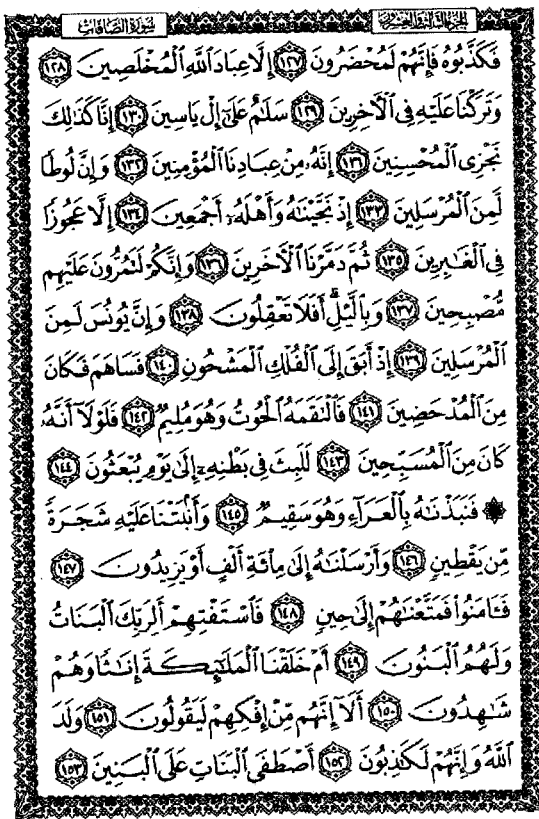 الجزء الثالث والعشرون
سورة الصافات
فَكَذَّبُوهُ فَإِنَّهُمْ لَمُحْضَرُونَ ١٢٧ إِلَّا عِبَادَ ٱللَّهِ ٱلْمُخْلَصِينَ ١٢٨
وَتَرَكْنَا عَلَيْهِ فِي ٱلْآخِرِينَ ١٢٩ سَلَٰمٌ عَلَىٰٓ إِلْ يَاسِينَ ١٣٠ إِنَّا كَذَٰلِكَ
نَجْزِى ٱلْمُحْسِنِينَ ١٣١ إِنَّهُۥ مِنْ عِبَادِنَا ٱلْمُؤْمِنِينَ ١٣٢ وَإِنَّ لُوطًا
لَّمِنَ ٱلْمُرْسَلِينَ ١٣٣ إِذْ نَجَّيْنَٰهُ وَأَهْلَهُۥٓ أَجْمَعِينَ ١٣٤ إِلَّا عَجُوزًا
فِي ٱلْغَٰبِرِينَ ١٣٥ ثُمَّ دَمَّرْنَا ٱلْآخَرِينَ ١٣٦ وَإِنَّكُمْ لَتَمُرُّونَ عَلَيْهِم
مُّصْبِحِينَ ١٣٧ وَبِٱلَّيْلِ ۗ أَفَلَا تَعْقِلُونَ ١٣٨ وَإِنَّ يُونُسَ لَمِنَ
ٱلْمُرْسَلِينَ ١٣٩ إِذْ أَبَقَ إِلَى ٱلْفُلْكِ ٱلْمَشْحُونِ ١٤٠ فَسَاهَمَ فَكَانَ
مِنَ ٱلْمُدْحَضِينَ ١٤١ فَٱلْتَقَمَهُ ٱلْحُوتُ وَهُوَ مُلِيمٌ ١٤٢ فَلَوْلَآ أَنَّهُۥ
كَانَ مِنَ ٱلْمُسَبِّحِينَ ١٤٣ لَلَبِثَ فِي بَطْنِهِۦٓ إِلَىٰ يَوْمِ يُبْعَثُونَ ١٤٤
۞ فَنَبَذْنَٰهُ بِٱلْعَرَآءِ وَهُوَ سَقِيمٌ ١٤٥ وَأَنۢبَتْنَا عَلَيْهِ شَجَرَةً
مِّن يَقْطِينٍ ١٤٦ وَأَرْسَلْنَٰهُ إِلَىٰ مِا۟ئَةِ أَلْفٍ أَوْ يَزِيدُونَ ١٤٧
فَـَٔامَنُوا۟ فَمَتَّعْنَٰهُمْ إِلَىٰ حِينٍ ١٤٨ فَٱسْتَفْتِهِمْ أَلِرَبِّكَ ٱلْبَنَاتُ
وَلَهُمُ ٱلْبَنُونَ ١٤٩ أَمْ خَلَقْنَا ٱلْمَلَٰٓئِكَةَ إِنَٰثًا وَهُمْ
شَٰهِدُونَ ١٥٠ أَلَآ إِنَّهُم مِّنْ إِفْكِهِمْ لَيَقُولُونَ ١٥١ وَلَدَ
ٱللَّهُ وَإِنَّهُمْ لَكَٰذِبُونَ ١٥٢ أَصْطَفَى ٱلْبَنَاتِ عَلَى ٱلْبَنِينَ ١٥٣